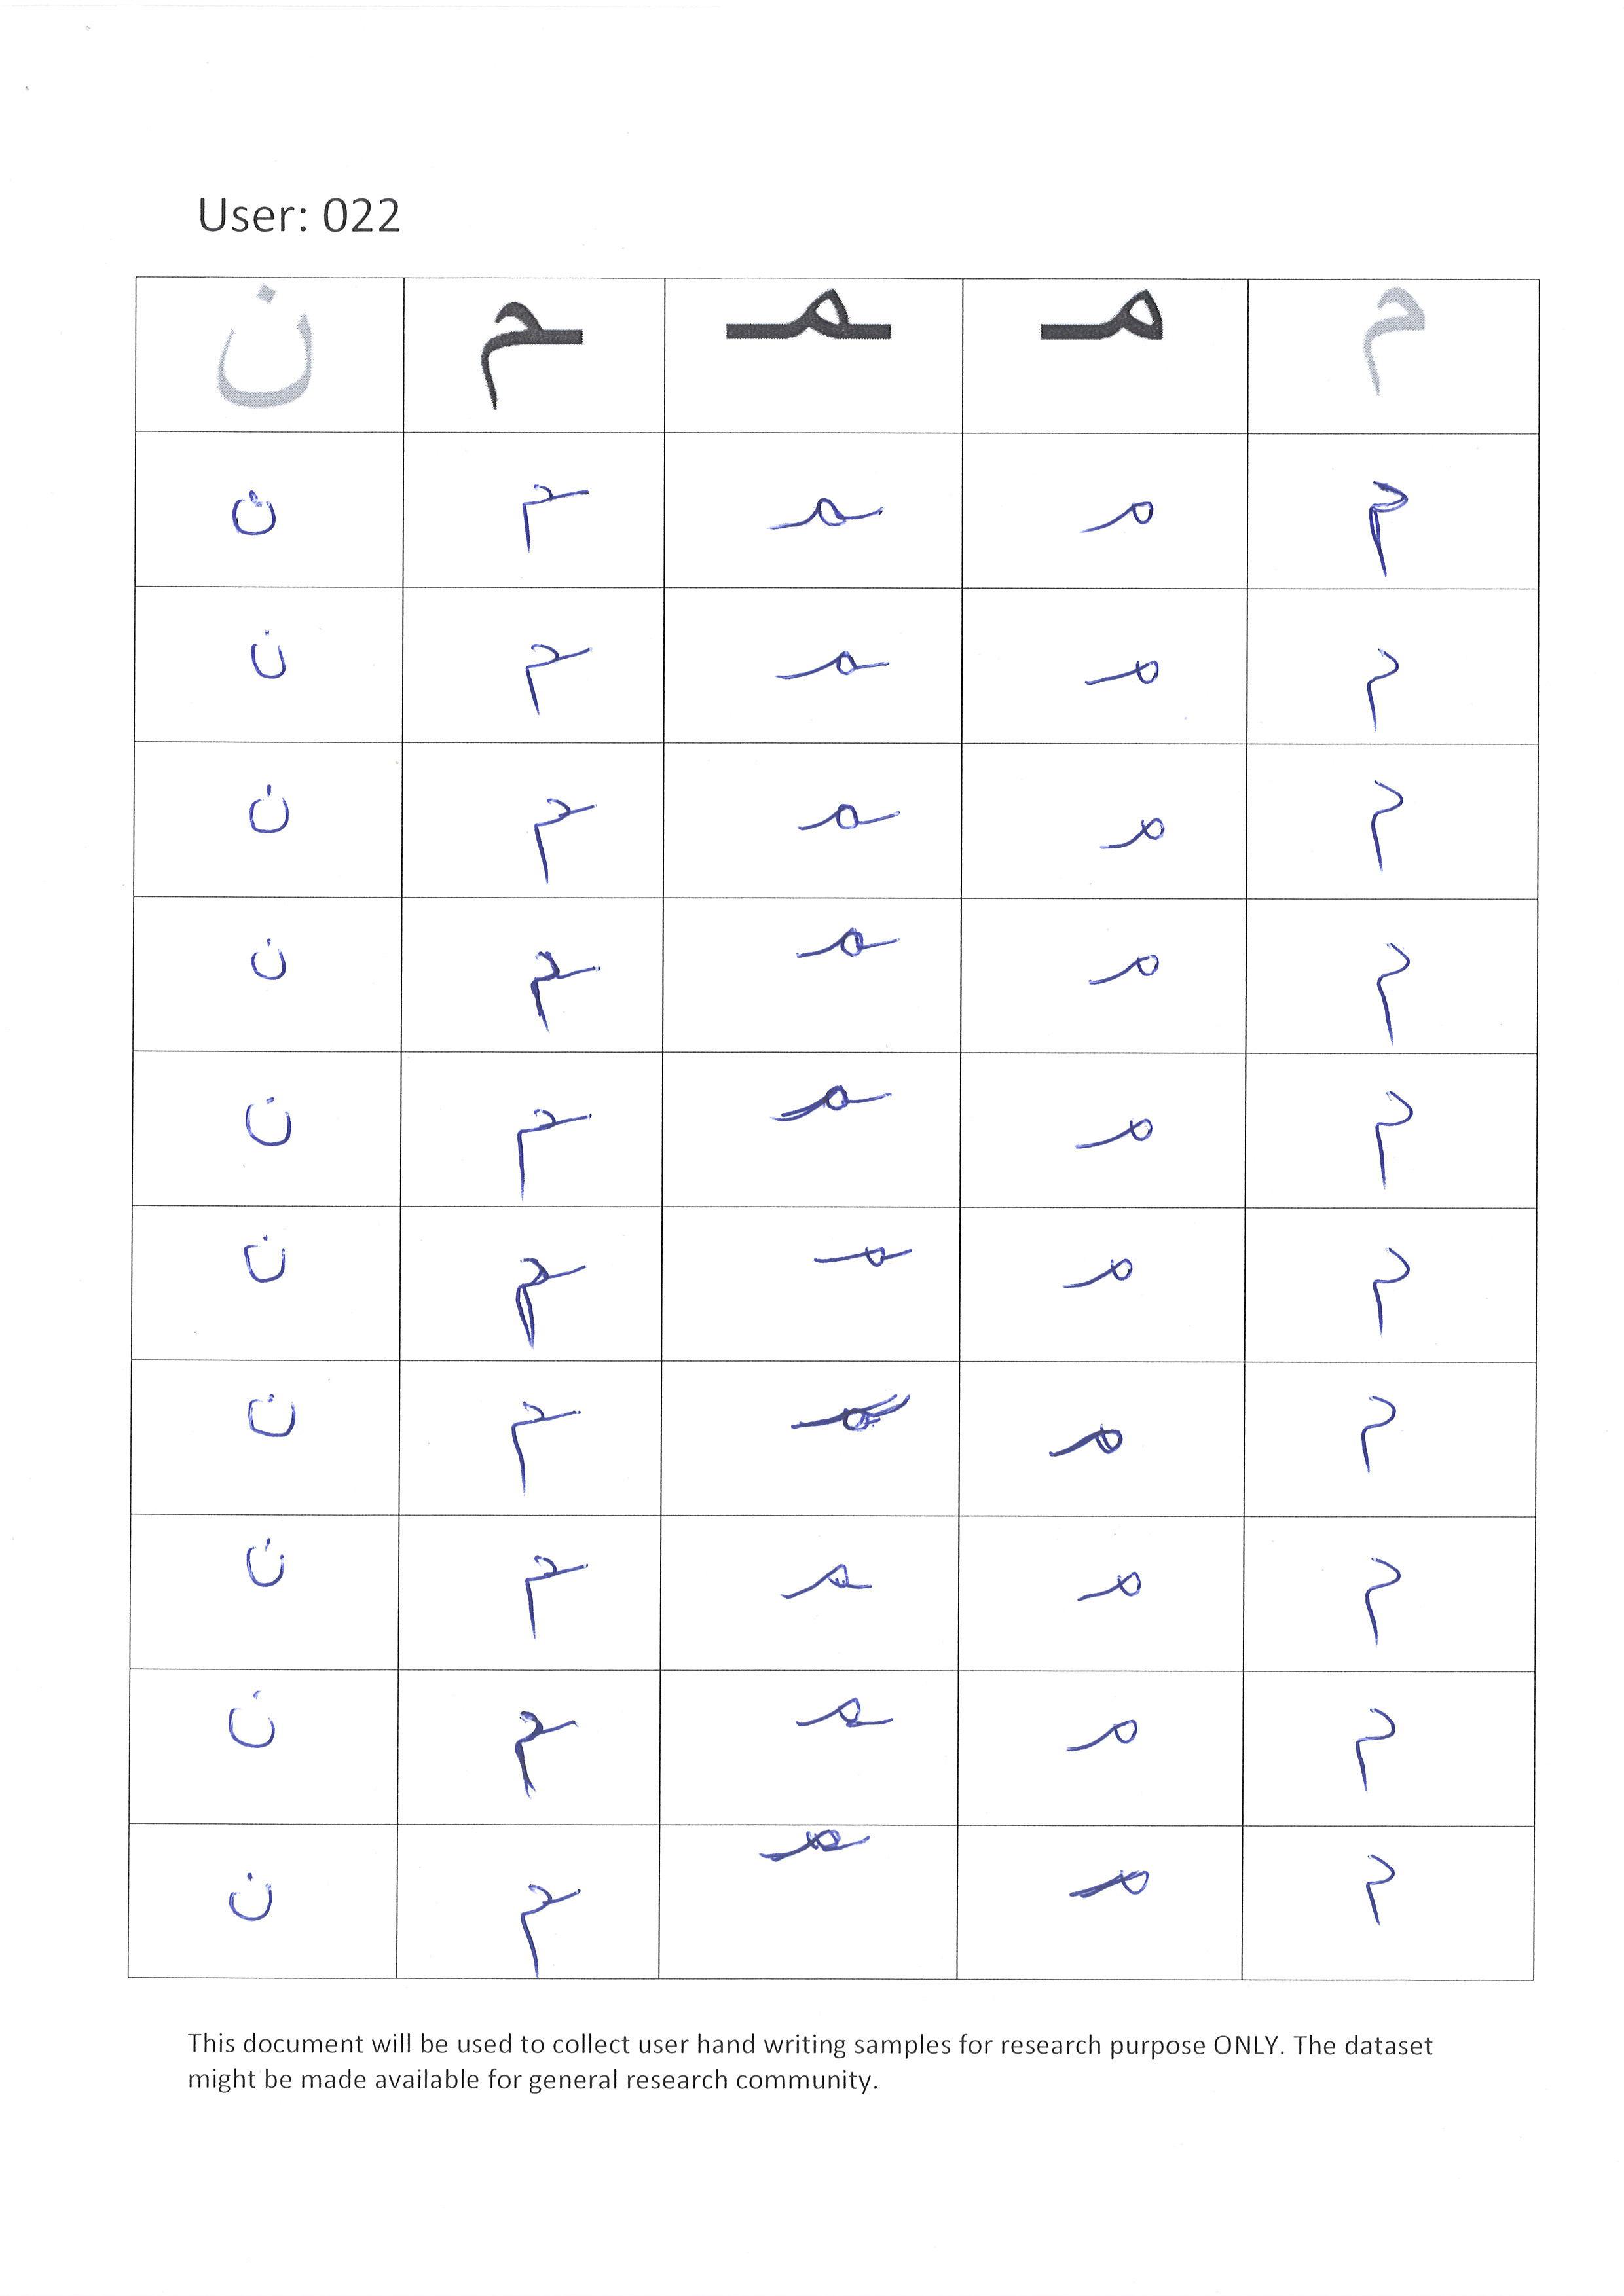 User: 022
م مـ ـمـ ـم ن
م مـ ـمـ ـم ن
م مـ ـمـ ـم ن
م مـ ـمـ ـم ن
م مـ ـمـ ـم ن
م مـ ـمـ ـم ن
م مـ ـمـ ـم ن
م مـ ـمـ ـم ن
م مـ ـمـ ـم ن
م مـ ـمـ ـم ن
م مـ ـمـ ـم ن
This document will be used to collect user hand writing samples for research purpose ONLY. The dataset
might be made available for general research community.